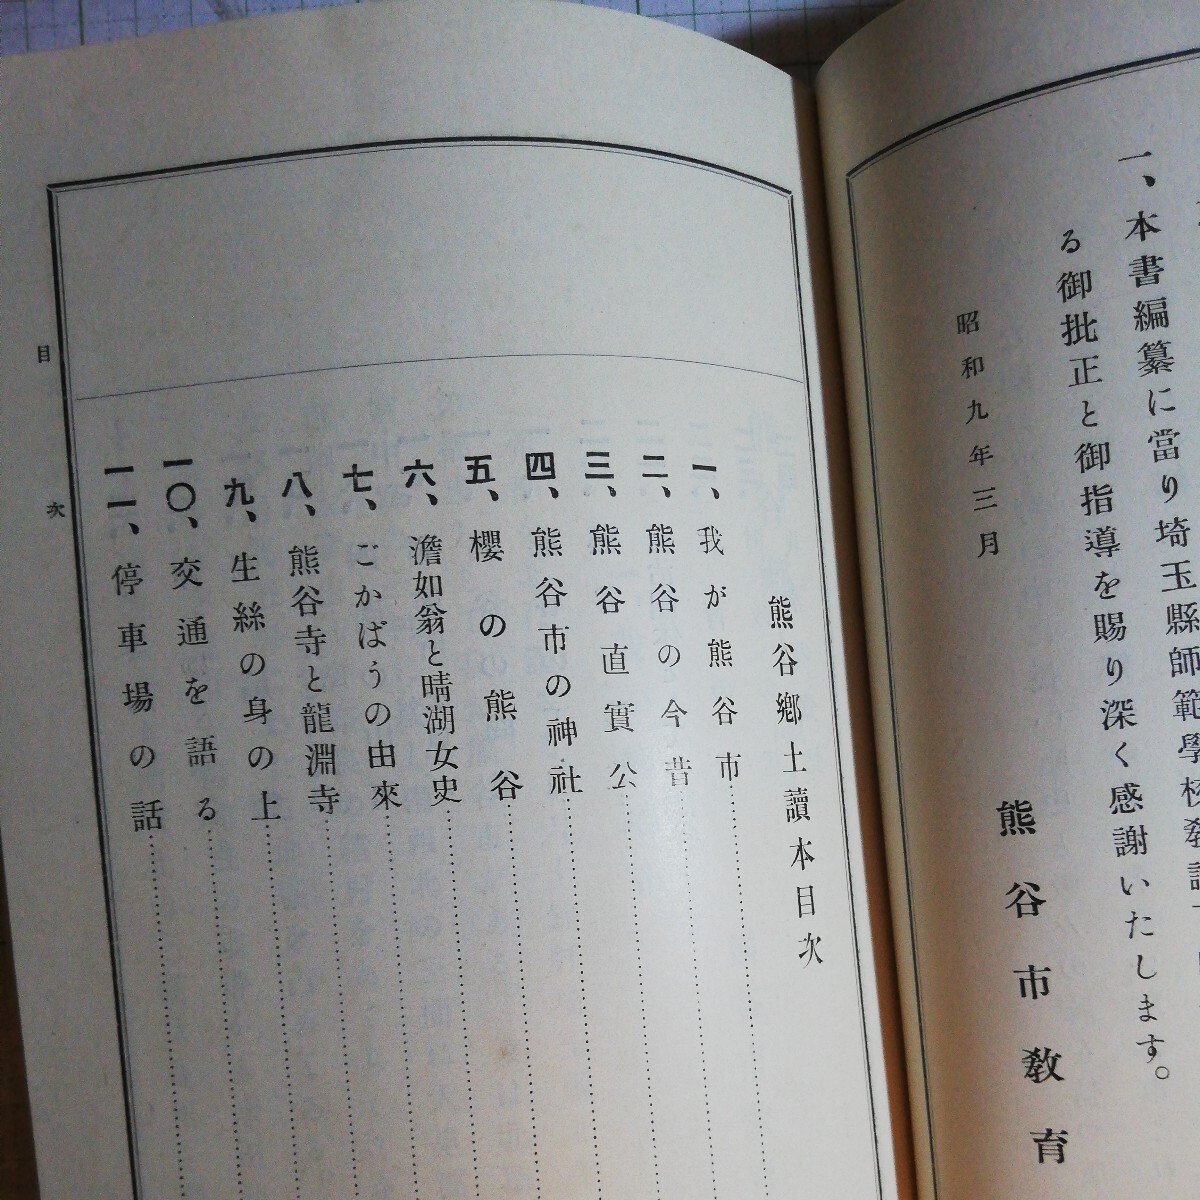 一、本書編纂に當り埼玉縣師範學校敎諭
る御批正と御指導を賜り深く感謝いたします。
昭和九年三月
熊谷市敎育
熊谷鄕土讀本目次
一、我が熊谷市
二、熊谷の今昔
三、熊谷直實公
四、熊谷市の神社
五、櫻の熊谷
六、澹如翁と晴湖女史
七、ごかばうの由來
八、熊谷寺と龍淵寺
九、生絲の身の上
一〇、交通を語る
一一、停車場の話
目次